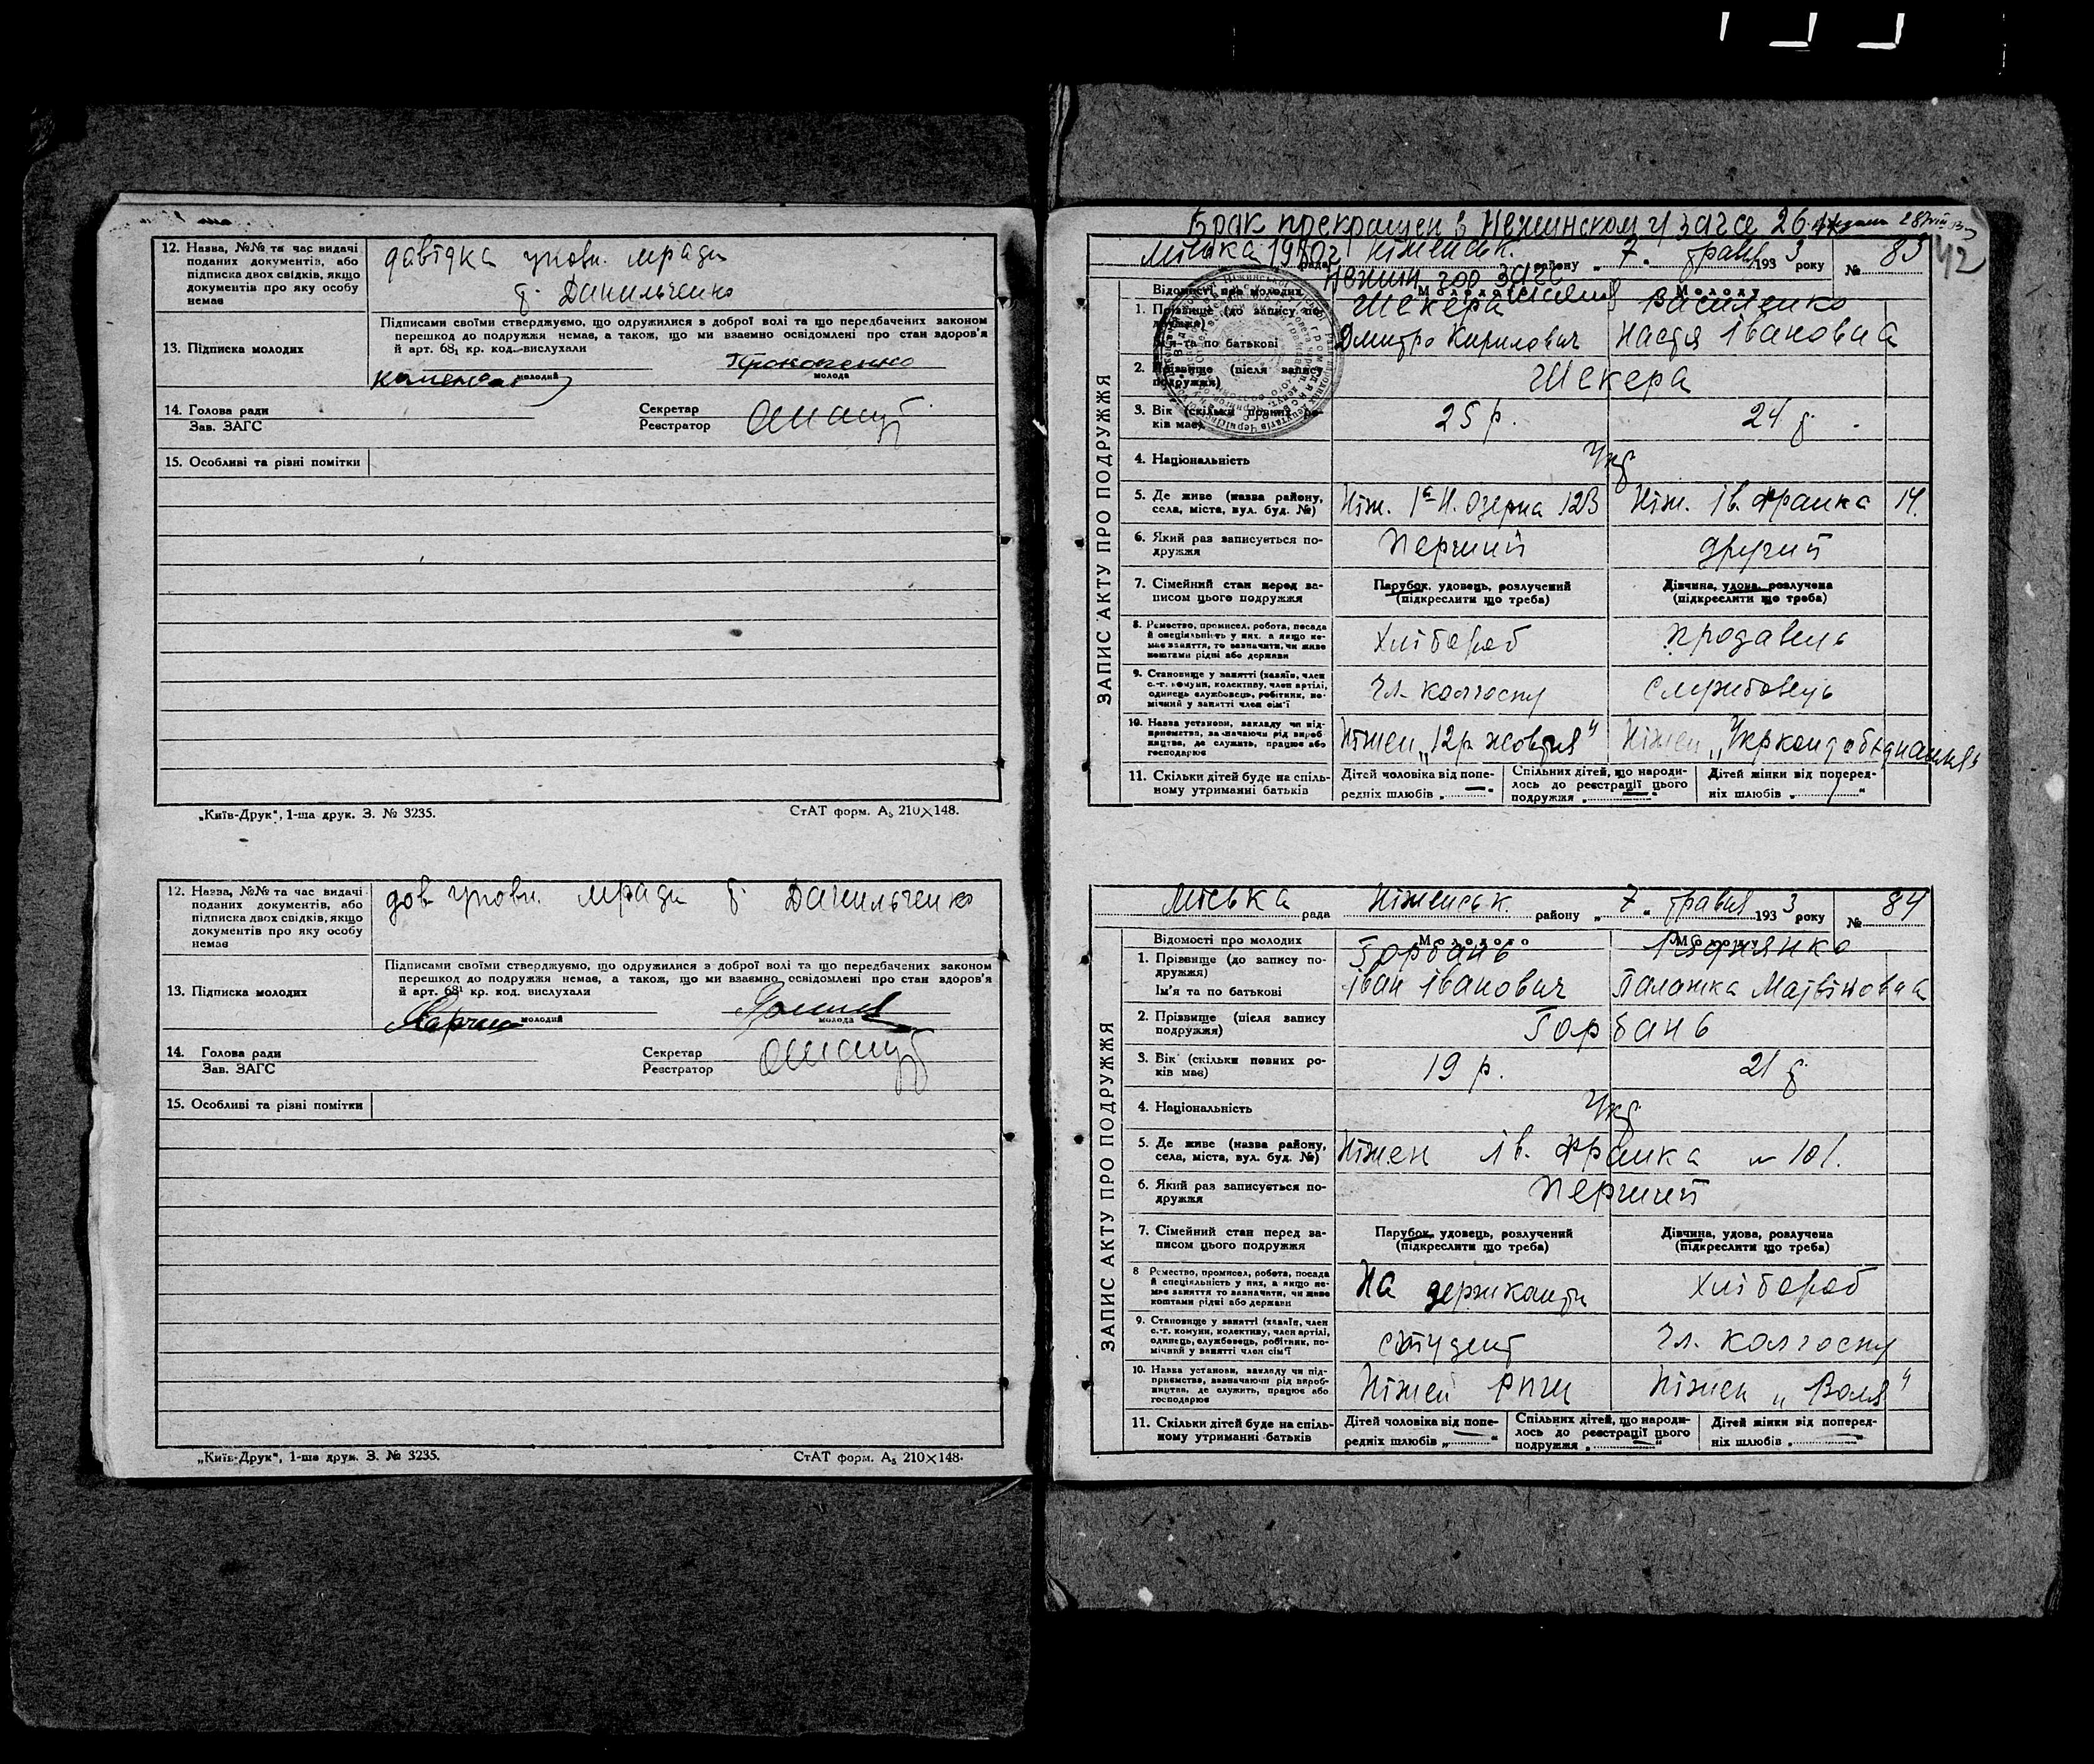 12. Назва, №№ та час видачі
поданих документів, або
підписка двох свідків, якщо
документів про яку особу
немає
довідка уповн. мради
т. Данильченко
13. Підписка молодих
Підписами своїми стверджуємо, що одружилися з доброї волі та що передбачених законом
перешкод до подружжя немає, а також, що ми взаємно освідомлені про стан здоров'я
й арт. 68₁ кр. код. вислухали
Прокопенко
молодий
молода
14. Голова ради
Зав. ЗАГС
Секретар
Реєстратор
15. Особливі та різні помітки
„Київ-Друк“, 1-ша друк. З. № 3235.
СтАТ форм. А₅ 210×148.
12. Назва, №№ та час видачі
поданих документів, або
підписка двох свідків, якщо
документів про яку особу
немає
дов уповн. мради т. Данильченко
13. Підписка молодих
Підписами своїми стверджуємо, що одружилися з доброї волі та що передбачених законом
перешкод до подружжя немає, а також, що ми взаємно освідомлені про стан здоров'я
й арт. 68¹ кр. код. вислухали
молодий
молода
14. Голова ради
Зав. ЗАГС
Секретар
Реєстратор
15. Особливі та різні помітки
„Київ-Друк“, 1-ша друк. З. № 3235.
СтАТ форм. А₅ 210×148.
Брак прекращен в Нежинском г/загсе 26
міська рада Ніженськ. району „ 7 „ травня 1933 року № 83
42
ЗАПИС АКТУ ПРО ПОДРУЖЖЯ
Відомості про молодих
Молодого
Молоду
1. Прізвище (до запису подружжя)
Шекера
Василенко
Ім'я та по батькові
Дмитро Кирилович
Настя Івановна
2. Прізвище (після запису
подружжя)
Шекера
3. Вік (скільки повних ро-
ків має)
25 р.
24 р.
4. Національність
Укр
5. Де живе (назва району,
села, міста, вул. буд. №)
Ніж. Н. Озерна 123
Ніж. Ів. Франка 14.
6. Який раз записується по-
дружжя
Перший
другий
7. Сімейний стан перед за-
писом цього подружжя
Парубок, удовець, розлучений
(підкреслити що треба)
Дівчина, удова, розлучена
(підкреслити що треба)
8. Ремество, промисел, робота, посада
й спеціяльність у них, а якщо не-
має заняття, то зазначити, чи живе
коштами рідні або держави
Хлібороб
продавець
9. Становище у занятті (хазяїн, член
с.-г. комуни, колективу, член артілі,
одинець, службовець, робітник, по-
мічний у занятті член сім'ї
Чл. колгоспу
Службовець
10. Назва установи, закладу чи під-
приємства, зазначаючи рід вироб-
ництва, де служить, працює або
господарює
Ніжен „12 р жовтня“
Ніжен
11. Скільки дітей буде на спіль-
ному утриманні батьків
Дітей чоловіка від попе-
редніх шлюбів „ — “
Спільних дітей, що народи-
лось до реєстрації цього
подружжя „ — “
Дітей жінки від поперед-
ніх шлюбів „ “
міська рада Ніженськ. району „ 7 „ травня 1933 року № 84
ЗАПИС АКТУ ПРО ПОДРУЖЖЯ
Відомості про молодих
Молодого
1. Прізвище (до запису по-
дружжя)
Горбань
Ім'я та по батькові
Іван Іванович
Палажка Матвіновна
2. Прізвище (після запису
подружжя)
Горбань
3. Вік (скільки повних ро-
ків має)
19 р.
21 р
4. Національність
Укр
5. Де живе (назва району,
села, міста, вул. буд. №)
Ніжен Ів. Франка № 101.
6. Який раз записується по-
дружжя
Перший
7. Сімейний стан перед за-
писом цього подружжя
Парубок, удовець, розлучений
(підкреслити що треба)
Дівчина, удова, розлучена
(підкреслити що треба)
8 Ремество, промисел, робота, посада
й спеціяльність у них, а якщо не-
має заняття то зазначити, чи живе
коштами рідні або держави
На держкошти
Хлібороб
9. Становище у занятті (хазяїн, член
с.-г. комуни, колективу, член артілі,
одинець, службовець, робітник, по-
мічний у занятті член сім'ї
студент
Чл. колгоспу
10. Назва установи, закладу чи під-
приємства, зазначаючи рід вироб-
ництва, де служить, працює або
господарює
Ніжен
Ніжен „ Воля “
11. Скільки дітей буде на спіль-
ному утриманні батьків
Дітей чоловіка від попе-
редніх шлюбів „ — “
Спільних дітей, що народи-
лось до реєстрації цього
подружжя „ — “
Дітей жінки від поперед-
ніх шлюбів „ — “